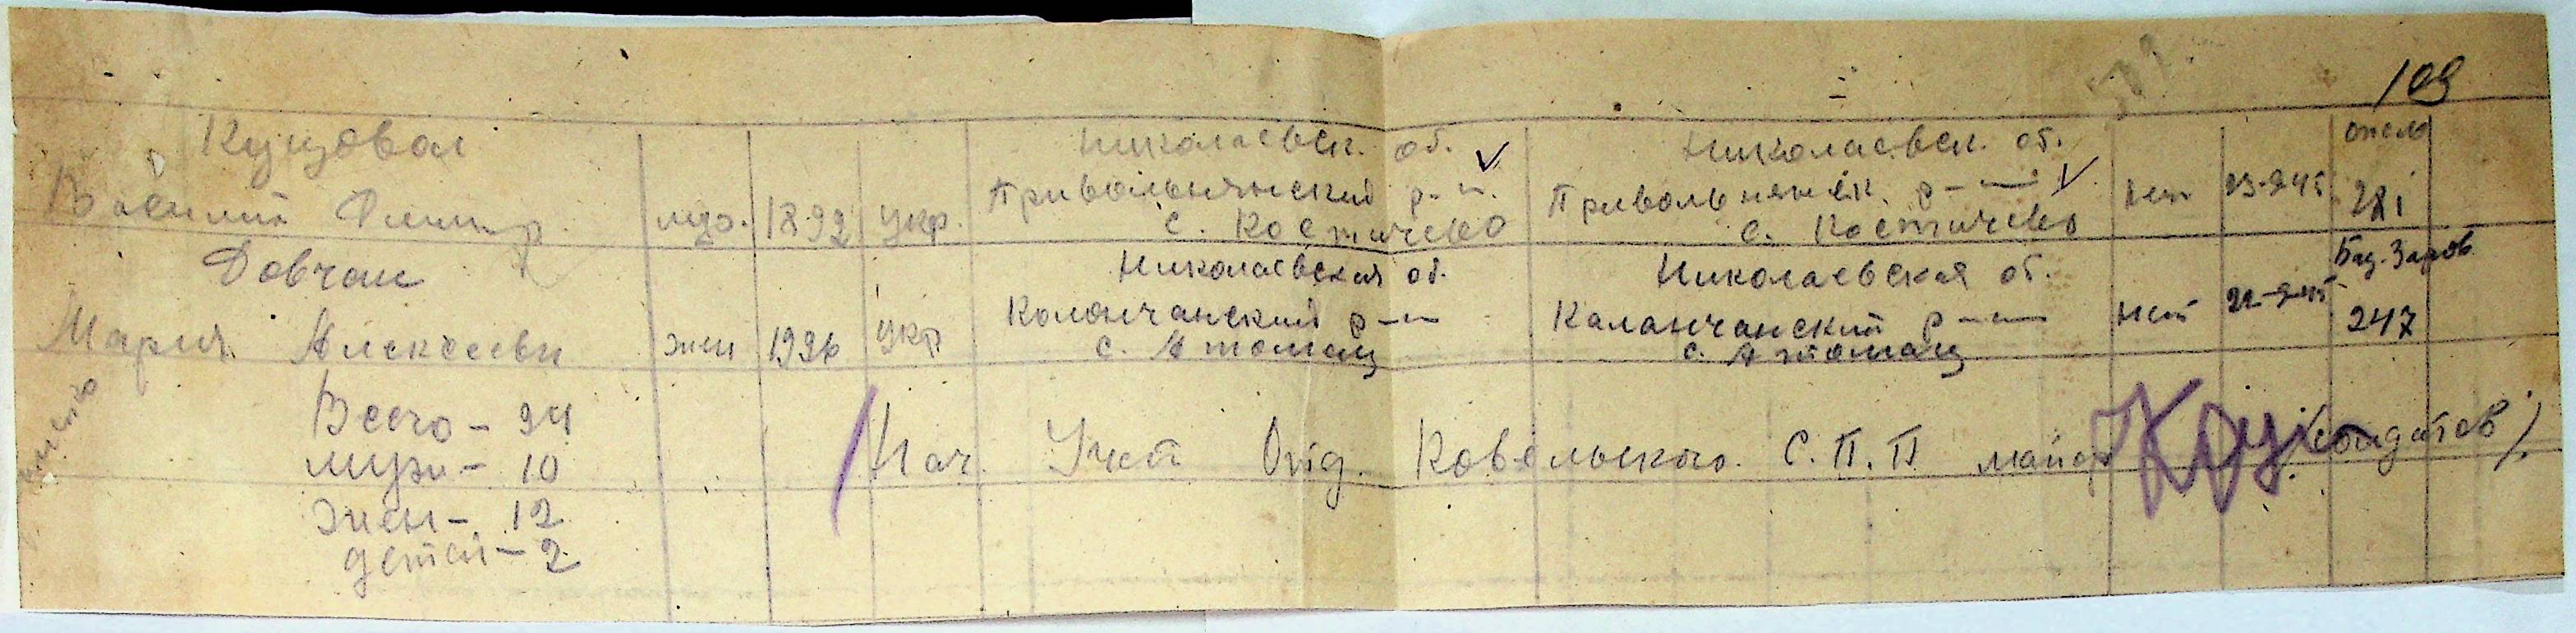 109
Куцовол
Василий Дмитр. муж. 1892 укр.
Николаевск. об.
Привольнянский р-н.
с. Костичево
Николаевск. об.
Привольнянск. р-н
с. Костичево
нет 23-9-45
281
Довчан
Мария Алексеевн жен 1926 укр
Николаевская об.
Колончанский р-н
с.
Николаевская об.
Каланчанский р-н
с.
нет 22-9-45
247
Всего - 24
муж - 10
жен - 12
детей - 2
Нач. Учет Ковельского С.П.П майор